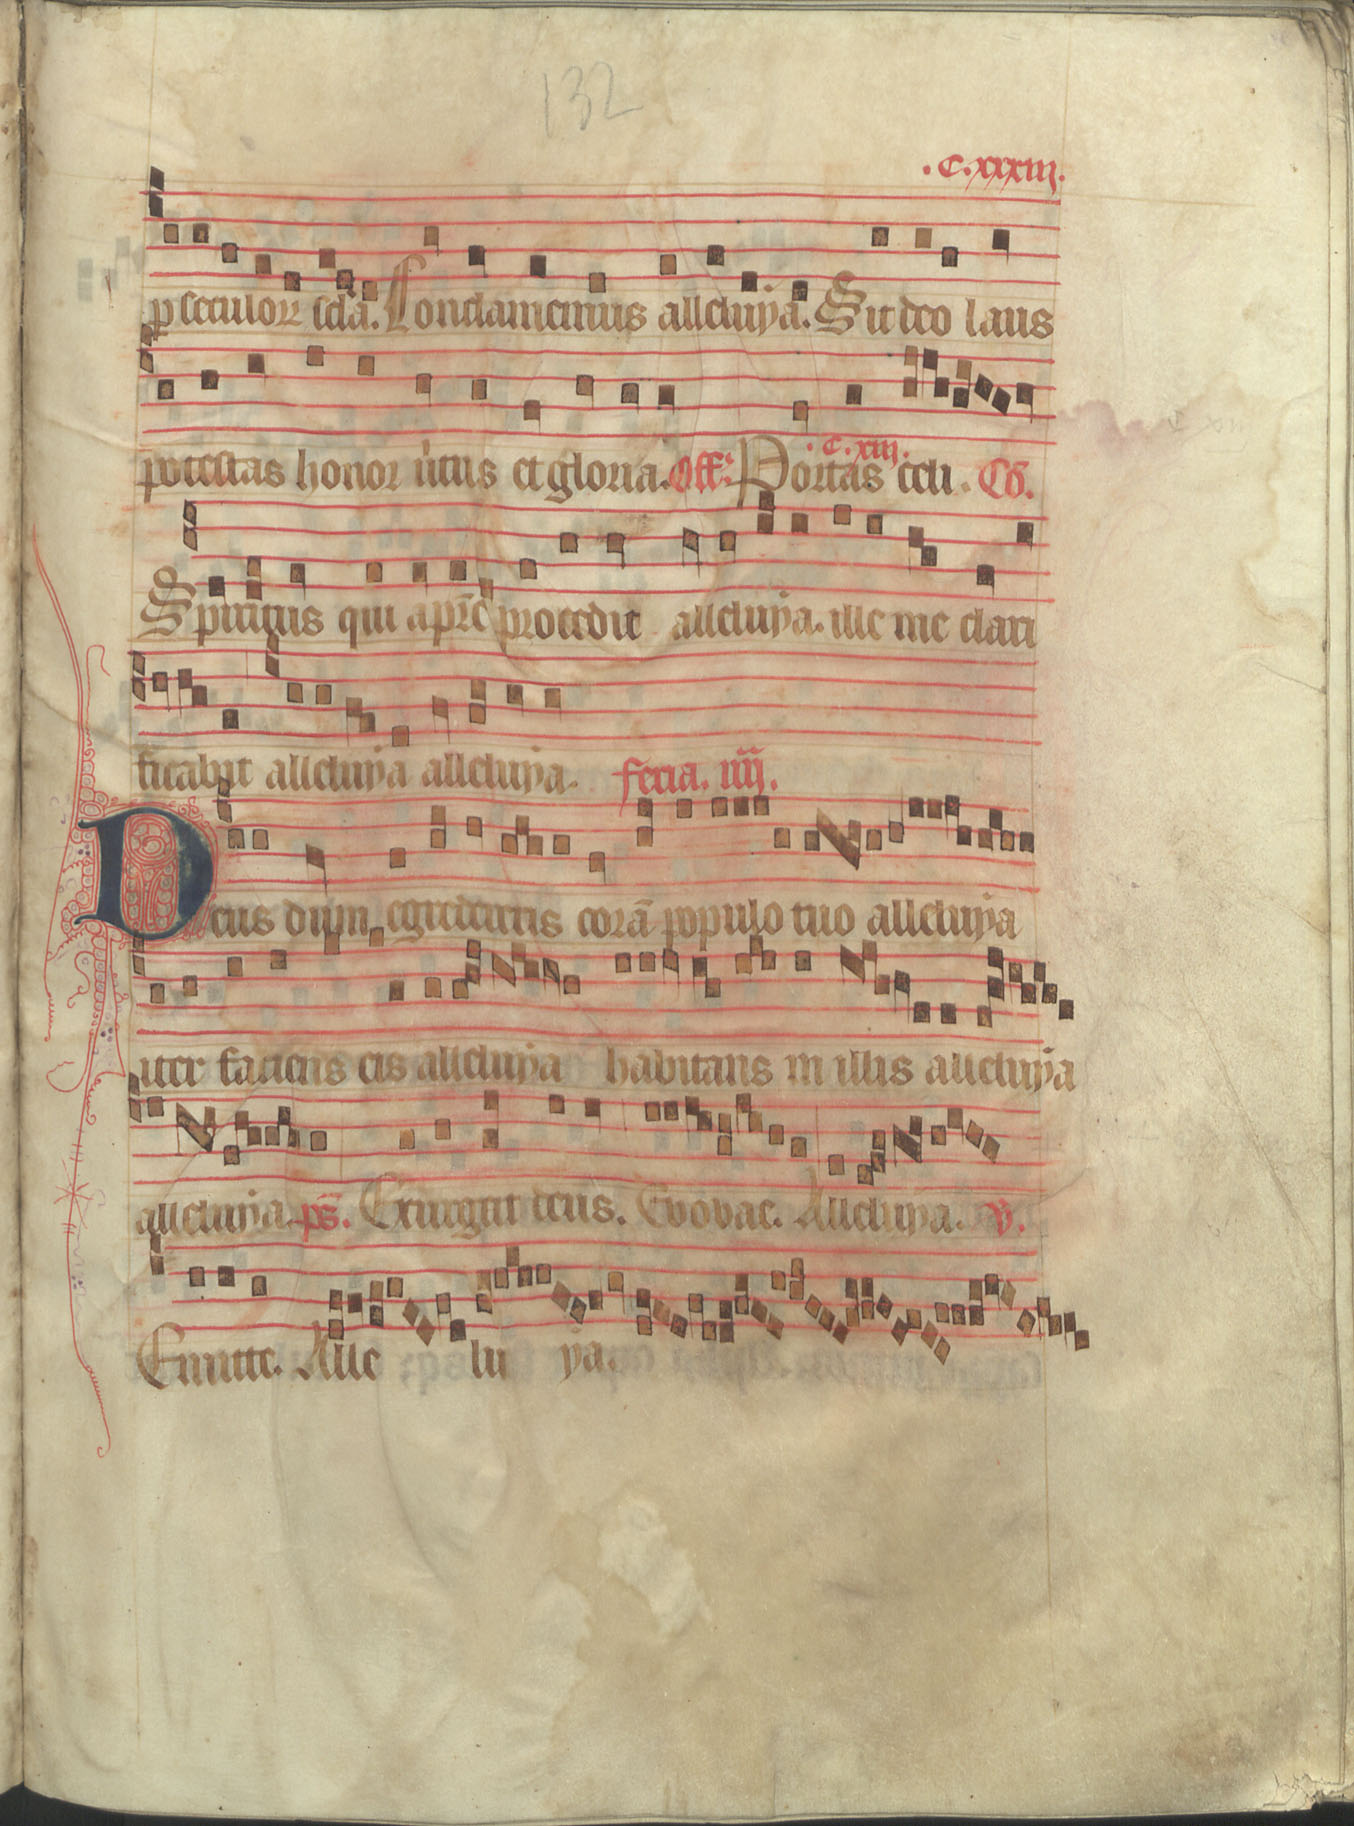 132
.C.xxxiii.
p seculor scła. Condamemus alleluya. Sit deo laus
potestas honor uirtus et gloria. Off. Portas celi. C.xiii. Cō.
Spiritus qui a pr̄e procedit alleluya. ille me clari
ficabit alleluya alleluya. feria. iiij.
Deus dum egredereris corā populo tuo alleluya
iter faciens eis alleluya habitans in illis alleluya
alleluya ps̄. Exurgat deus. Evovae. Alleluya. V.
Emitte. Alle lu ya.